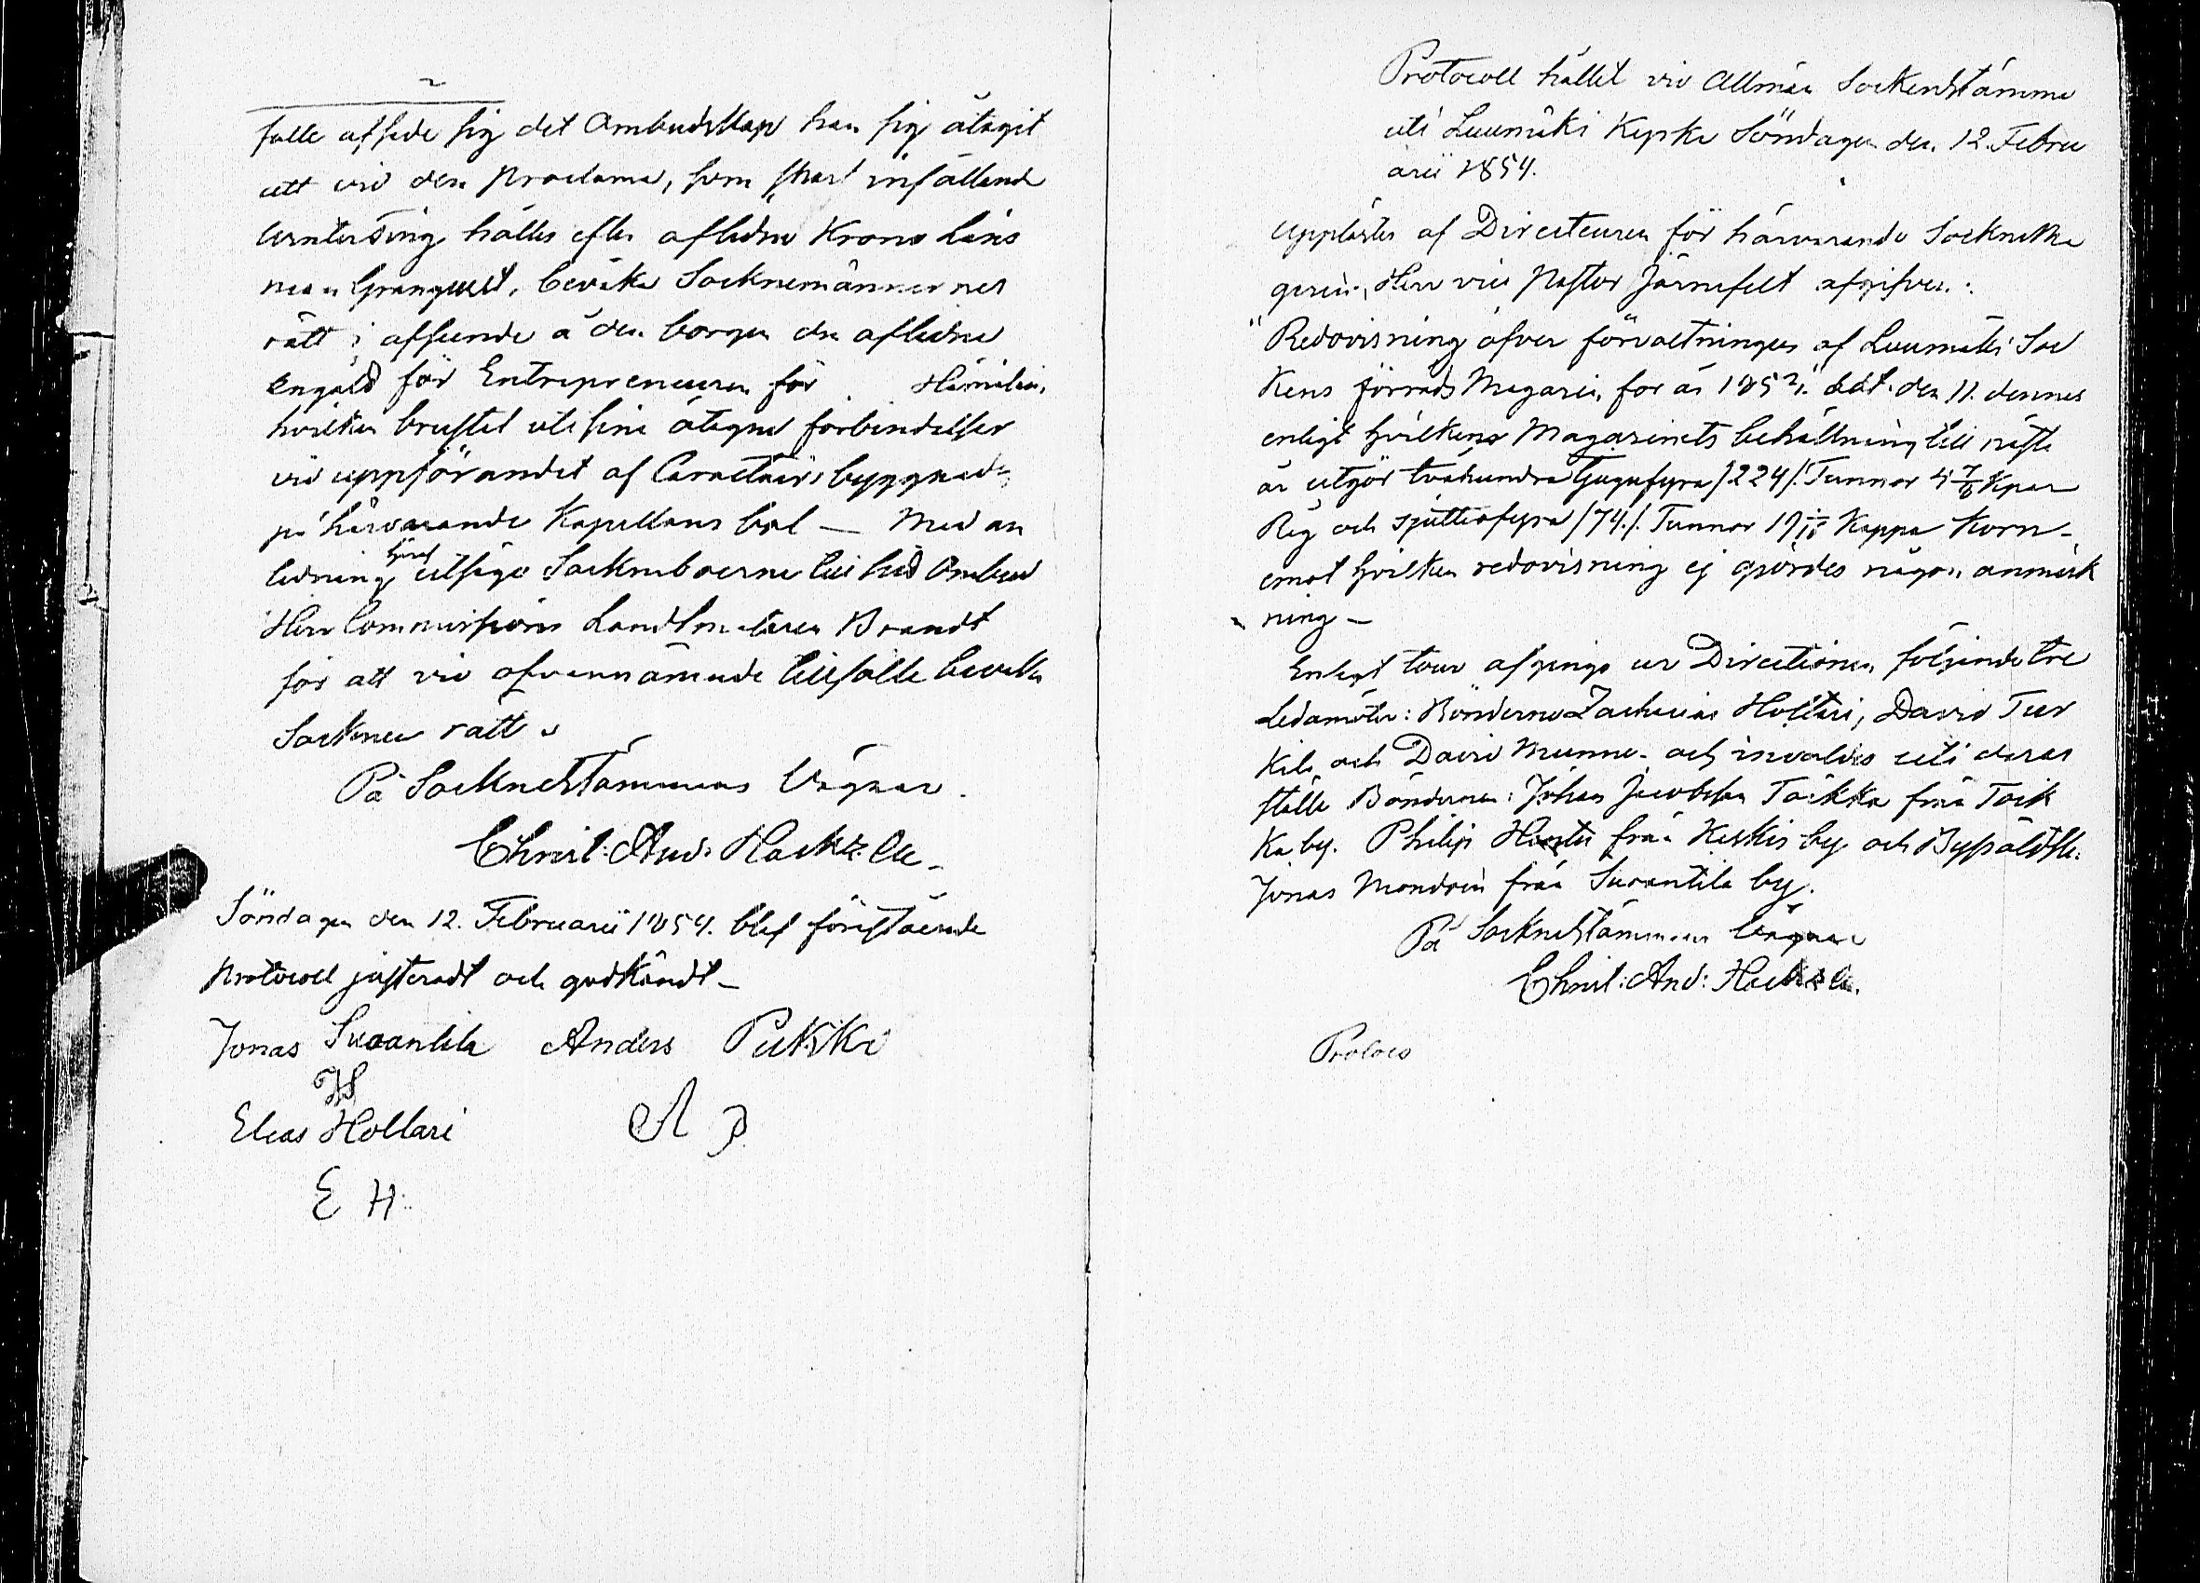 falle afsäde sig det Ambudskap han sig åtagit
att vid den Proclama, som snart infallande
Vinterting hålles efter aflidne Krono Läns
man Granqvist, bevaka Socknemännernes
rätt i afseende å den borgen den aflidne
ingått för Entrepreneuren för
hvilken brustit uti sine åtagne förbindelser
vid uppförandet af Caractärs byggnad
på härvarande Kapellans bol — Med an
ledning häraf utsågo Sockneboerne till sitt Ombud
Herr Commissions Landtmätaren Brandt
för att vid ofvannämnde tillfälle bevaka
Socknens rätt.
På Socknestämmans Vägnar.
Christ: And: Hackzell
Söndagen den 12. Februarii 1854. blef förestående
Protocoll justeradt och godkändt —
Jonas Suoantila Anders Pukki
JS
Elias Hollari A P
E H
Protocoll hållet vid Allmän Sockenstämma
uti Luumäki Kyrka Söndagen den 12. Febru
arii 1854.
Upplästes af Directeuren för härvarande Sockne Ma
gasin, Herr vice Pastor Järnefelt afgifven:
"Redovisning öfver förvaltningen af Luumäki Soc
kens förråds Magasin för år 1853." dat. den 11. dennes
enligt hvilken Magasinets behållning till nästa
år utgör tvåhundra tjugufyra /224/. Tunnor 4 7/8 Kpar
Råg och sjuttiofyra /74/. Tunnor 19 Kappa Korn —
emot hvilken redovisning ej gjordes någon anmärk
ning —
Enligt tour afgingo ur Directionen följande tre
Ledamöter: Bönderne Zacharias Hollari, David Tur
kil och David Munne — och invaldes uti deras
ställe Bönderne: Johan Jacobsson Toikka från Toik
ka by. Philip från Keskis by och Byåldste:
Jonas Mondoin från Suoantila by.
På Sockenstämmans Vägnar
Christ: And: Hackzell.
Protoco